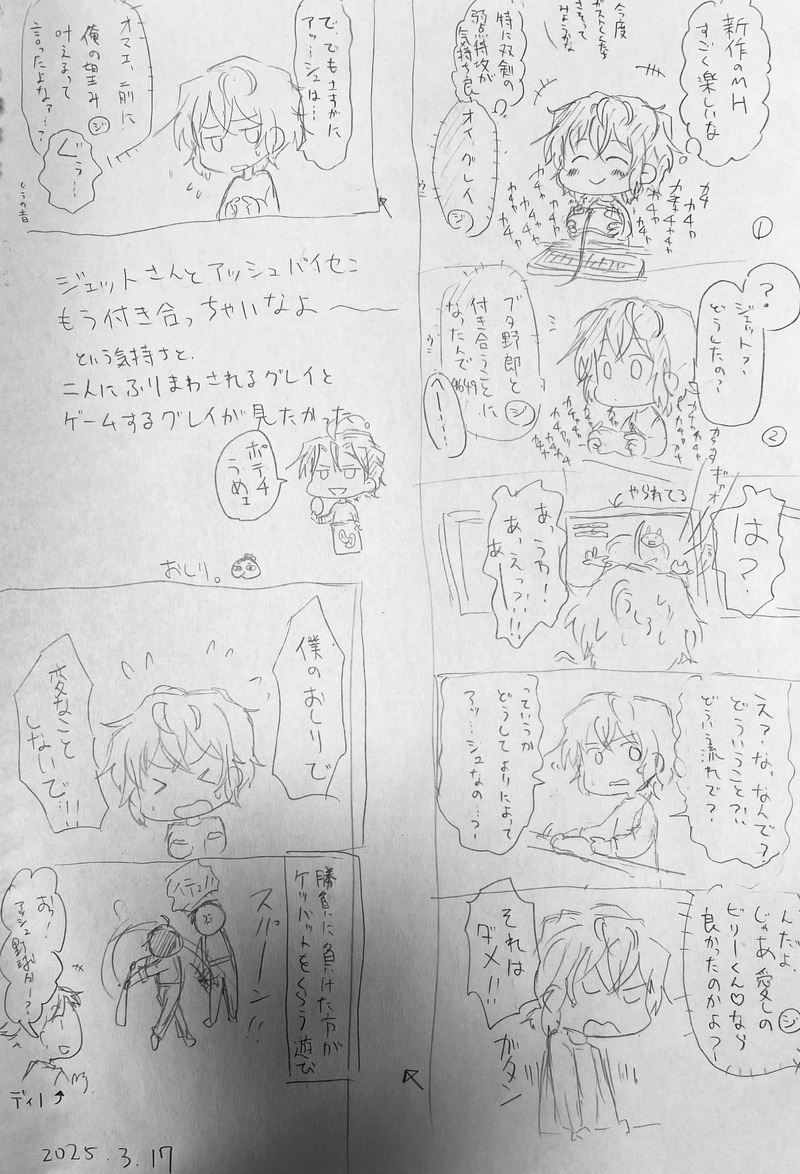 新作のMH
すごく楽しいな
今度
ガストくんたち
さそって
みようかな
特に双剣の
弱点特攻が
気持ち良
オイ、グレイ
ジ
カチャ
カチャ
カチャ
カチャ
①
?
ジェット?
どうしたの?
ブタ野郎と
付き合うことに
なったんで
4649
ジ
へー…
カチャ
カチャ
②
は?
やられてる
うしろ
あっうわ!
あ、えっ?!!
あ
えっ、な、なんで?
どういうこと?!
どういう流れで?
っていうか
どうしてよりによって
アッ…シュなの…?
んだよ、
じゃあ愛しの
ビリーくん♡なら
良かったのかよ?
ジ
それは
ダメ!!
ガタン
で、でもさすがに
アッ…シュは…
オマエ、前に
俺の望み
叶えるって
言ったよなァ…?
ジ
ぐぅ…
ぐうの音
ジェットさんとアッシュパイセン
もう付き合っちゃいなよ〜
という気持ちと、
二人にふりまわされるグレイと
ゲームするグレイが見たかった。
ポテチ
うめェ
おしり。
僕のおしりで
変なこと
しないで…!!
勝負に負けた方が
ケツバットをくらう遊び
スパーン!!
おっ!
アッシュ野球か!?
ディノ
2025.3.17